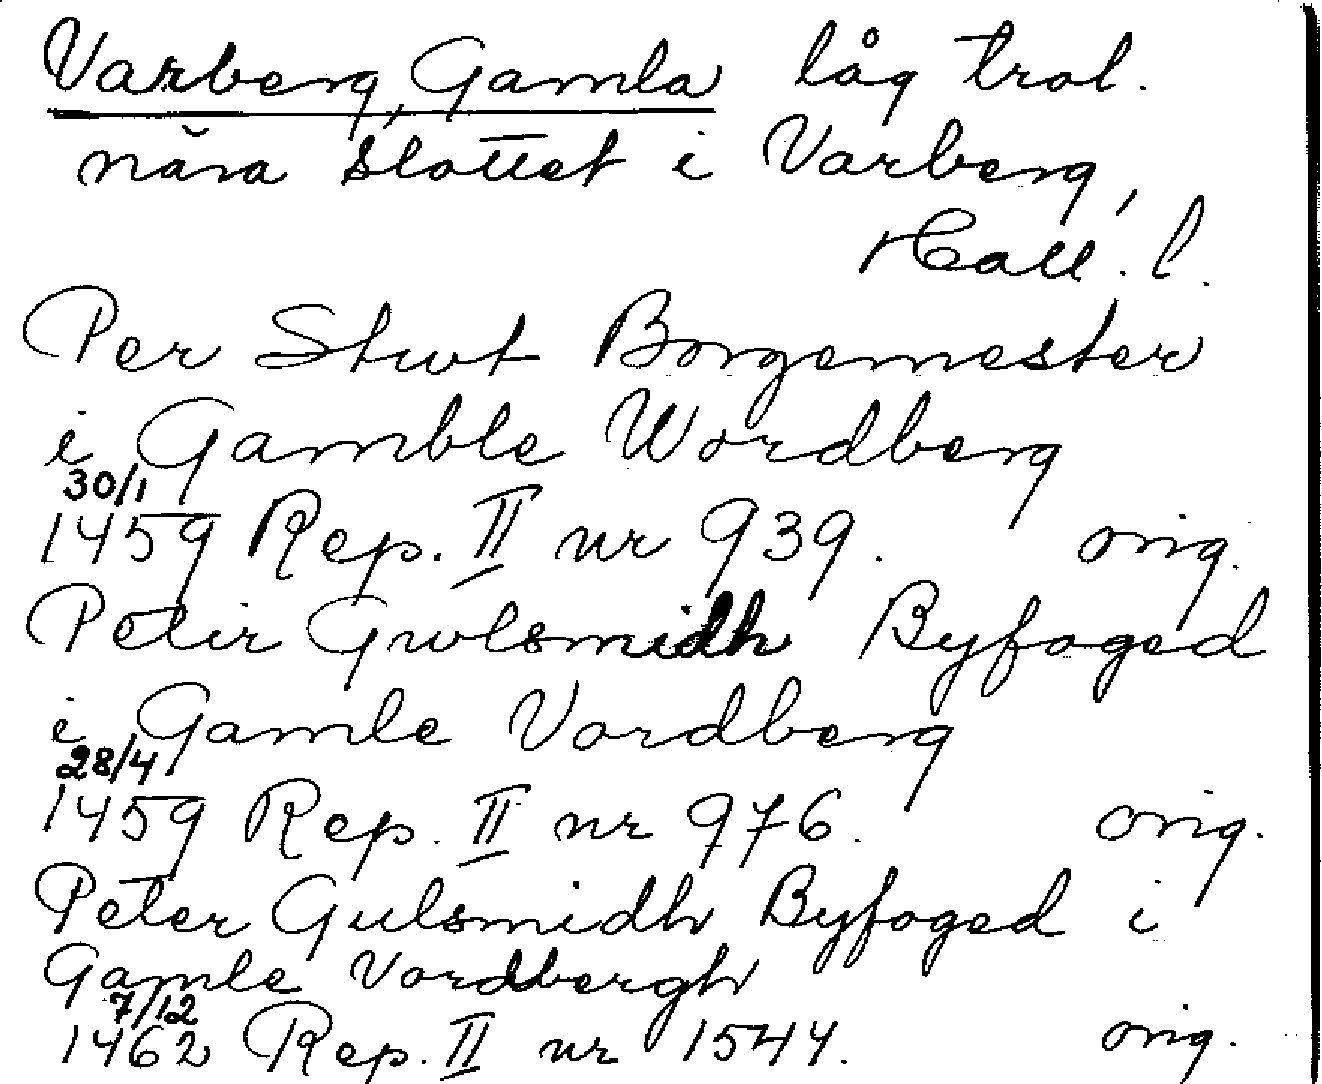 Varberg, Gamla låg trol.
nära slottet i Varberg,
Hall. l.
Per Stwt Borgemester
i Gamble Wordberg
30/1
1459 Rep. II nr 939. orig.
Petir Gwlsmidh Byfoged
i Gamle Vordberg
28/4
1459 Rep. II nr 976. orig.
Peter Gulsmidh Byfoged i
Gamle Vordbergh
7/12
1462 Rep. II nr 1544. orig.